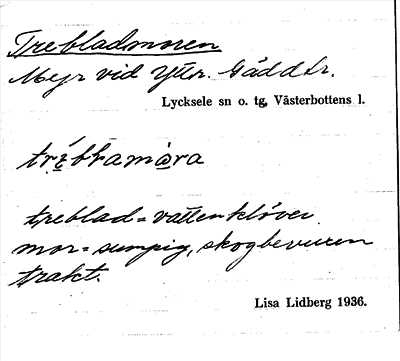 Trebladmoren
Myr vid Yttr. Gäddtr.
Lycksele sn o. tg, Västerbottens l.
treblad = vattenklöver
mor = sumpig, skogbevuxen
trakt.
Lisa Lidberg 1936.